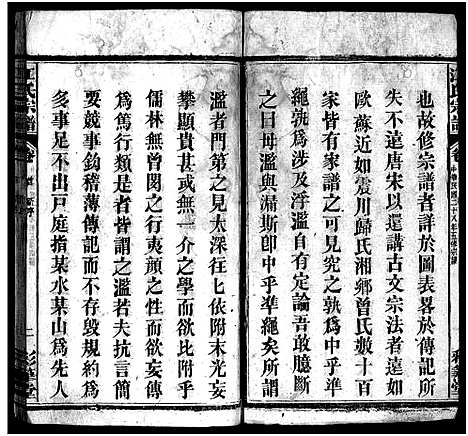 也故修宗譜者詳於圖表畧於傳記所
失不遠唐宋以還講古文宗法者遠如
歐蘇近如震川歸氏湘鄉曾氏數十百
家皆有家譜之可見究之孰為中乎準
繩孰為涉及浮濫自有定論吾敢臆斷
之曰毋濫與漏斯卽中乎準繩矣所謂
濫者門第之見太深往七依附末光妄
攀顯貴甚或無一介之學而欲附之於
儒林無曾閔之行夷顏之性而欲妄傳
為篤行類是者皆謂之濫若夫抗言簡
要兢事鈎稽薄傳記而不存毀規約為
多事足不出戶庭指某水某山為先人
江氏宗譜
卷
二